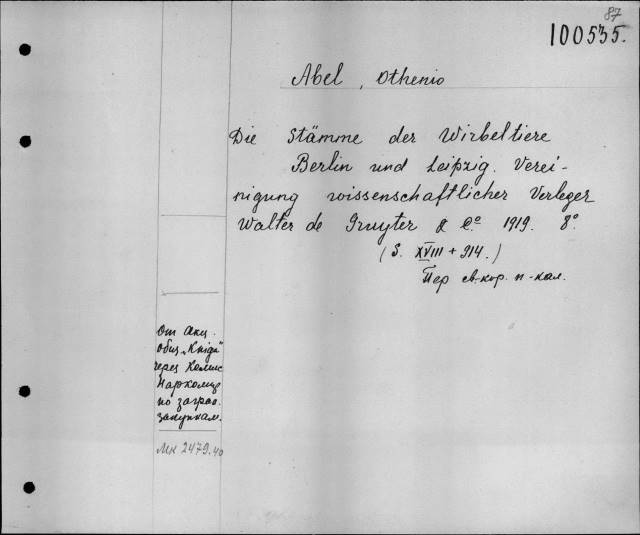 87
100535.
Abel, Othenio
Die Stämme der Wirbeltiere
Berlin und Leipzig. Verei-
nigung wissenschaftlicher Verleger
Walter de Gruyter & Co 1919. 8°
(S. XVIII + 914.)
Пер св.-кор. п-кал.
От акц.
общ. „Kniga"
через Комис
Наркомце
по загран.
закупкам.
Мк 2479.40